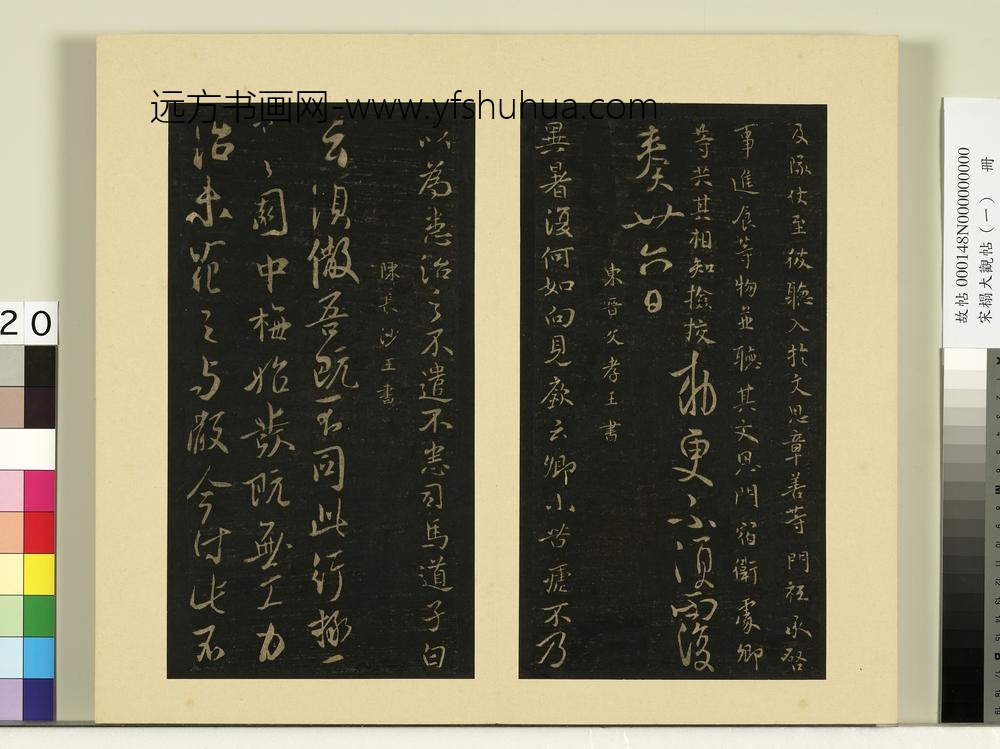 远方书画网-www.yfshuhua.com
及隊仗至彼聽入於文思章善等門祗承啓
事進食等物並聽其文思門宿衛處卿
等共其相知撿挍
勑更不須而復
奏廿六日
東晉文孝王書
異暑復何如向見厥云卿小苦瘧不乃
以為患治之不遣不患司馬道子白
陳長沙王書
云須儆吾既不同此行極
園中梅始發既無工力
治未花之与嚴今付此不
故帖 000148N000000000
宋榻大觀帖(一) 冊
20